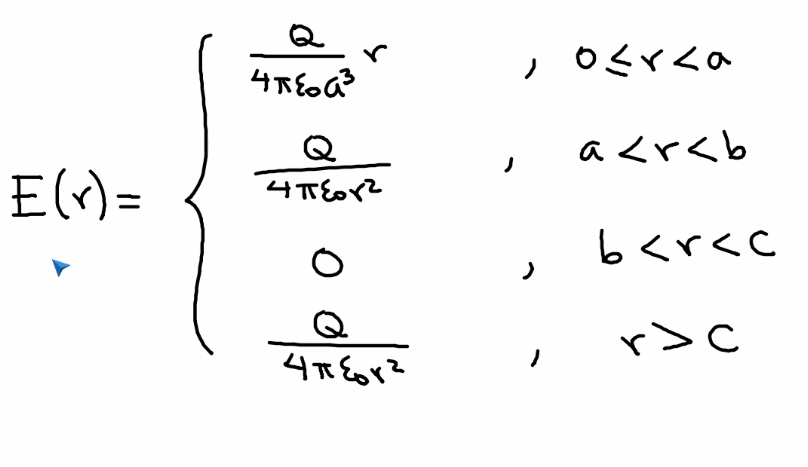 E(r) = { Q / 4πε₀a³ r , 0 ≤ r < a
Q / 4πε₀r² , a < r < b
0 , b < r < c
Q / 4πε₀r² , r > c